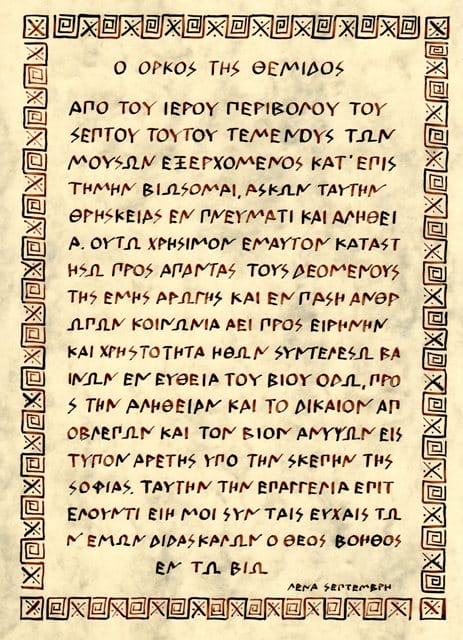 Ο ΟΡΚΟΣ ΤΗΣ ΘΕΜΙΔΟΣ
ΑΠΟ ΤΟΥ ΙΕΡΟΥ ΠΕΡΙΒΟΛΟΥ ΤΟΥ
ΣΕΠΤΟΥ ΤΟΥΤΟΥ ΤΕΜΕΝΟΥΣ ΤΩΝ
ΜΟΥΣΩΝ ΕΞΕΡΧΟΜΕΝΟΣ ΚΑΤ' ΕΠΙΣ
ΤΗΜΗΝ ΒΙΩΣΟΜΑΙ, ΑΣΚΩΝ ΤΑΥΤΗΝ
ΘΡΗΣΚΕΙΑΣ ΕΝ ΠΝΕΥΜΑΤΙ ΚΑΙ ΑΛΗΘΕΙ
Α. ΟΥΤΩ ΧΡΗΣΙΜΟΝ ΕΜΑΥΤΟΝ ΚΑΤΑΣΤ
ΗΣΩ ΠΡΟΣ ΑΠΑΝΤΑΣ ΤΟΥΣ ΔΕΟΜΕΝΟΥΣ
ΤΗΣ ΕΜΗΣ ΑΡΩΓΗΣ ΚΑΙ ΕΝ ΠΑΣΗ ΑΝΘΡ
ΩΠΩΝ ΚΟΙΝΩΝΙΑ ΑΕΙ ΠΡΟΣ ΕΙΡΗΝΗΝ
ΚΑΙ ΧΡΗΣΤΟΤΗΤΑ ΗΘΩΝ ΣΥΝΤΕΛΕΣΩ ΒΑ
ΙΝΩΝ ΕΝ ΕΥΘΕΙΑ ΤΟΥ ΒΙΟΥ ΟΔΩ, ΠΡΟ
Σ ΤΗΝ ΑΛΗΘΕΙΑΝ ΚΑΙ ΤΟ ΔΙΚΑΙΟΝ ΑΠ
ΟΒΛΕΠΩΝ ΚΑΙ ΤΟΝ ΒΙΟΝ ΑΝΥΨΩΝ ΕΙΣ
ΤΥΠΟΝ ΑΡΕΤΗΣ ΥΠΟ ΤΗΝ ΣΚΕΠΗΝ ΤΗΣ
ΣΟΦΙΑΣ. ΤΑΥΤΗΝ ΤΗΝ ΕΠΑΓΓΕΛΙΑ ΕΠΙΤ
ΕΛΟΥΝΤΙ ΕΙΗ ΜΟΙ ΣΥΝ ΤΑΙΣ ΕΥΧΑΙΣ ΤΩ
Ν ΕΜΩΝ ΔΙΔΑΣΚΑΛΩΝ Ο ΘΕΟΣ ΒΟΗΘΟΣ
ΕΝ ΤΩ ΒΙΩ
ΛΕΝΑ ΣΕΠΤΕΜΒΡΗ